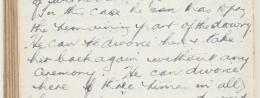 In this case he can
the remaining part of the dowry.
He can divorce her & take
her back again without any
ceremony. He can divorce
her if three times in all,